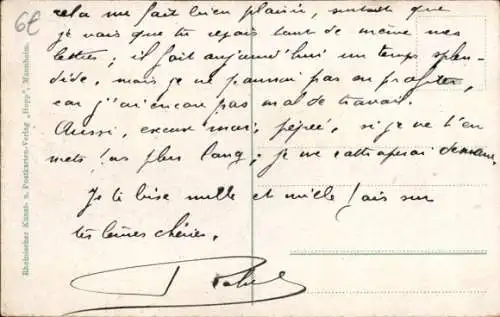 6€
cela me fait bien plaisir, surtout que
je vois que tu reçois tout de même mes
lettres; il fait aujourd'hui un temps splen-
dide, mais je ne pourrai pas en profiter,
car j'ai encore pas mal de travail.
Aussi, excuse moi, pépée, si je ne t'en
mets pas plus long; je me rattraperai demain.
Je te bise mille et mille fois sur
tes lèvres chéries.
Rheinischer Kunst- u. Postkarten-Verlag „Hepp", Mannheim.